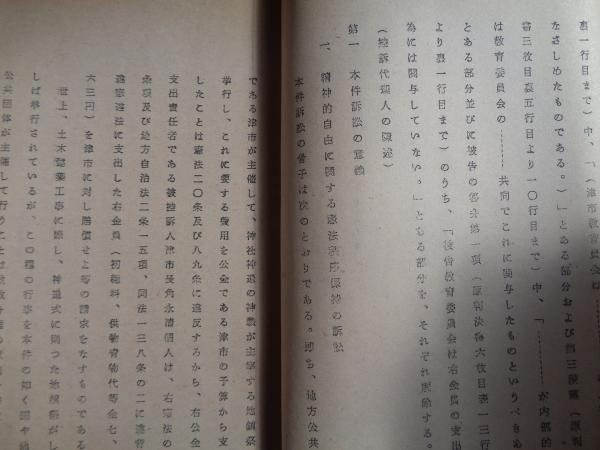 裏一行目まで)中、「(津市教育委員会は
をさしめたものである。)」とある部分および第三段落(原判
書三枚目裏五行目より一〇行目まで)中、「………が内部的
は教育委員会の………共同でこれに関与したものというべきあ
とある部分並びに被告の答弁第一項(原判決書六枚目表一三行
より裏一行目まで)のうち、「被告教育委員会は右金員の支出
為には関与していない。」とある部分を、それぞれ削除する。
(控訴代理人の陳述)
第一 本件訴訟の意義
一、精神的自由に関する憲法秩序保持の訴訟
本件訴訟の骨子は次のとおりである。即ち、地方公共
である津市が主催して、神社神道の神職が主宰する地鎮祭
挙行し、これに要する費用を公金である津市の予算から支
したことは憲法二〇条及び八九条に違反するから、右公金
支出責任者である被控訴人津市長角永清個人は、右憲法の
条項及び地方自治法二条一五項、同法一三八条の二に違背
違憲違法に支出した右金員(初穂料、供物青物代等金七、
六三円)を津市に対し賠償せよ等の請求をなすものである
世上、土木建築工事に際し、神道式に則つた地鎮祭がし
しば挙行されているが、この種の行事を本件の如く国や地
公共団体が主催して行うことは